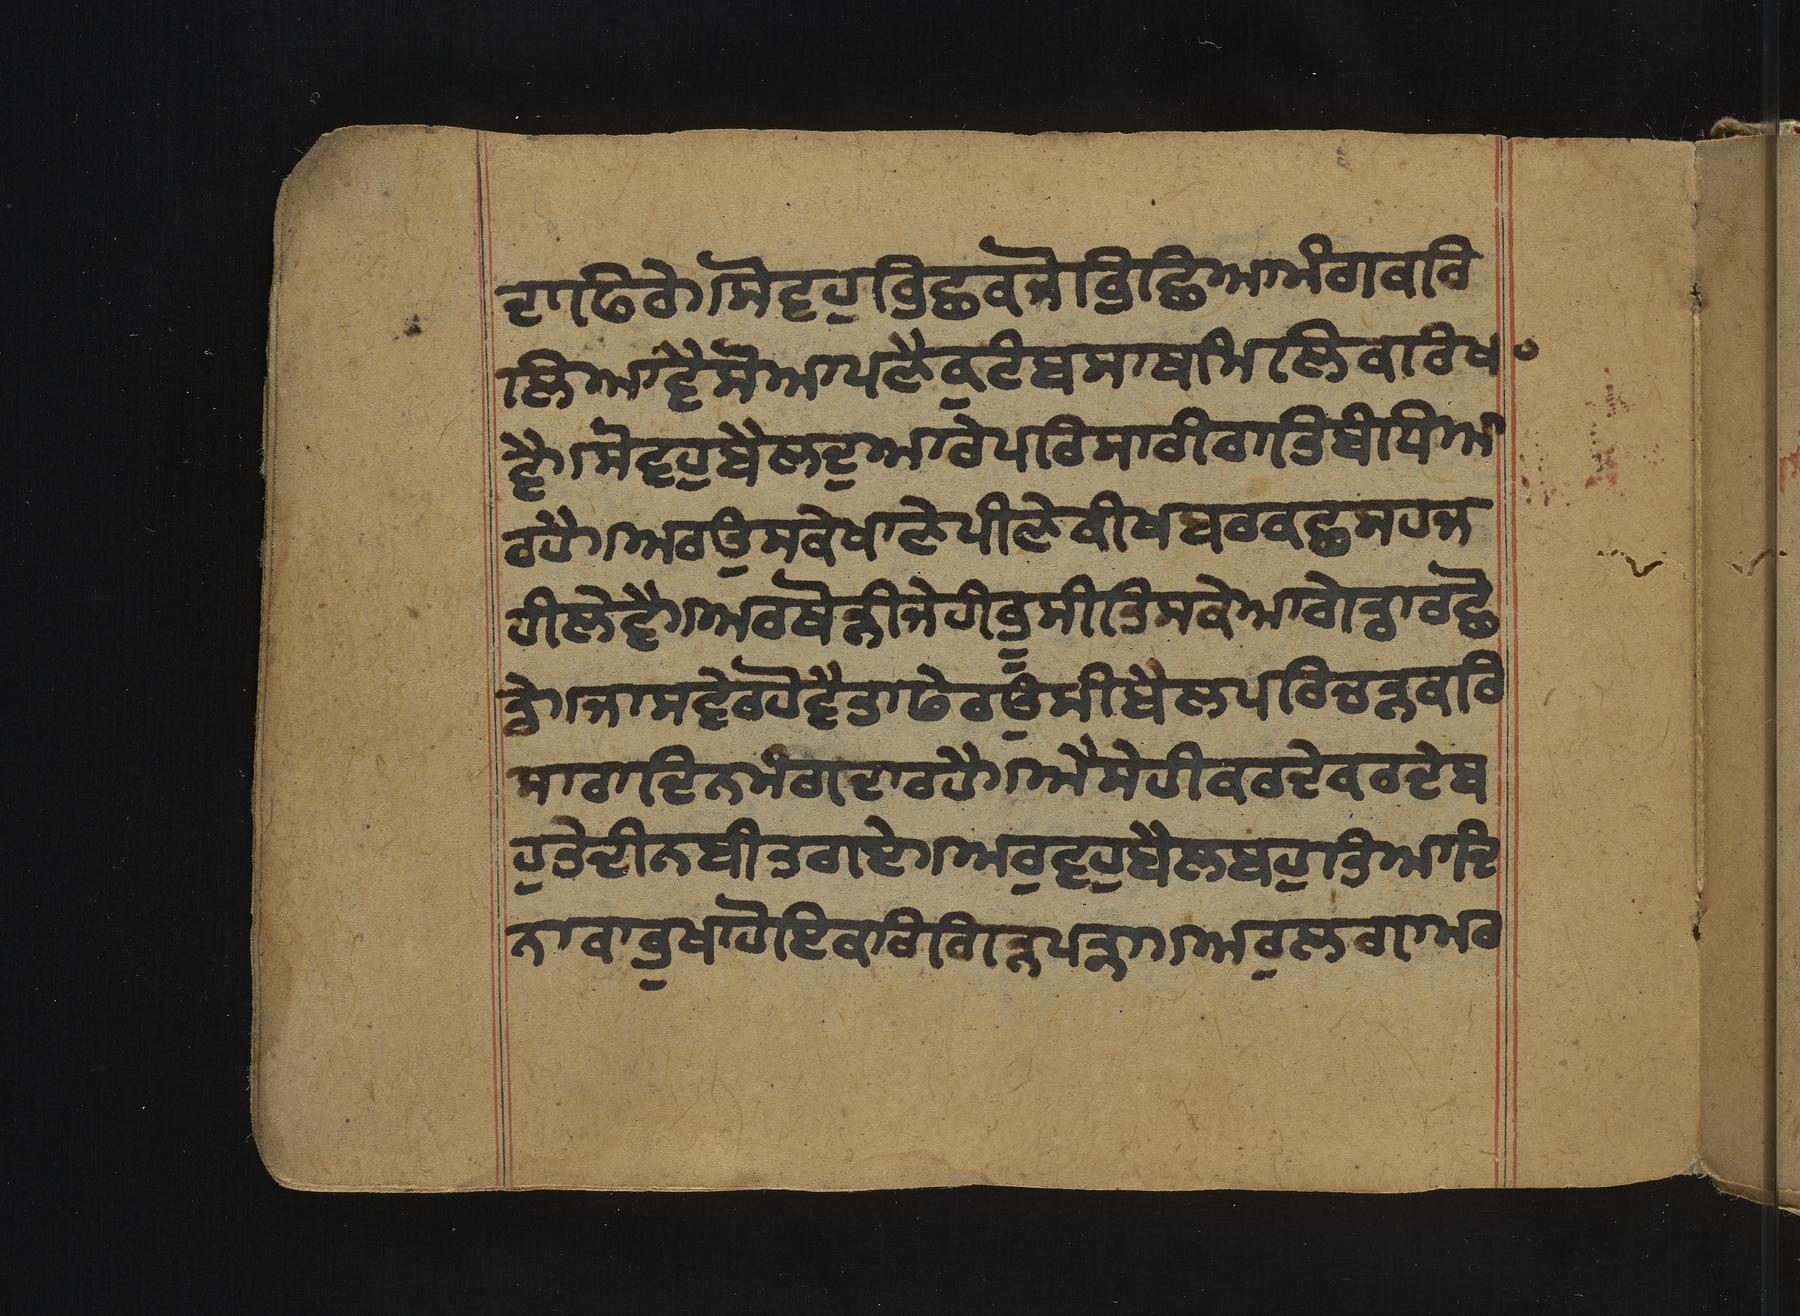 ਦਾਫਿਰੇ।ਸੋਵਹੁਭਿਛਕਜੋਭਿਛਿਆਮੰਗਕਰਿ
ਲਿਆਵੈਸੋਆਪਣੈਕੁਟੰਬਸਾਥਿਮਿਲਿਕਰਿਖਾ
ਵੈ।ਸੋਵਹੁਬੈਲਦੁਆਰੇਪਰਿਸਾਰੀਰਾਤਿਬੰਧਿਆ
ਰਹੈ।ਅਰਉਸਕੇਖਾਣੇਪੀਣੇਕੀਖਬਰਕਛੁਸਹਜ
ਹੀਲੇਵੈ।ਅਰਥੋੜੀਜੇਹੀਭੂਸੀਤਿਸਕੇਆਗੇਡਾਰਛੋ
ਡੇ।ਜਾਸਵੇਰਹੋਵੈਤਾਫੇਰਉਸੀਬੈਲਪਰਿਚੜਕਰਿ
ਸਾਰਾਦਿਨਮੰਗਦਾਰਹੈ।ਐਸੇਹੀਕਰਦੇਕਰਦੇਬ
ਹੁਤੇਦੀਨਬੀਤਗਏ।ਅਰੁਵਹੁਬੈਲਬਹੁਤਿਆਦਿ
ਨਾਕਾਭੁਖਾਹੋਇਕਰਿਗਿੜਪੜਾ।ਅਰੁਲਗਾਮਰ